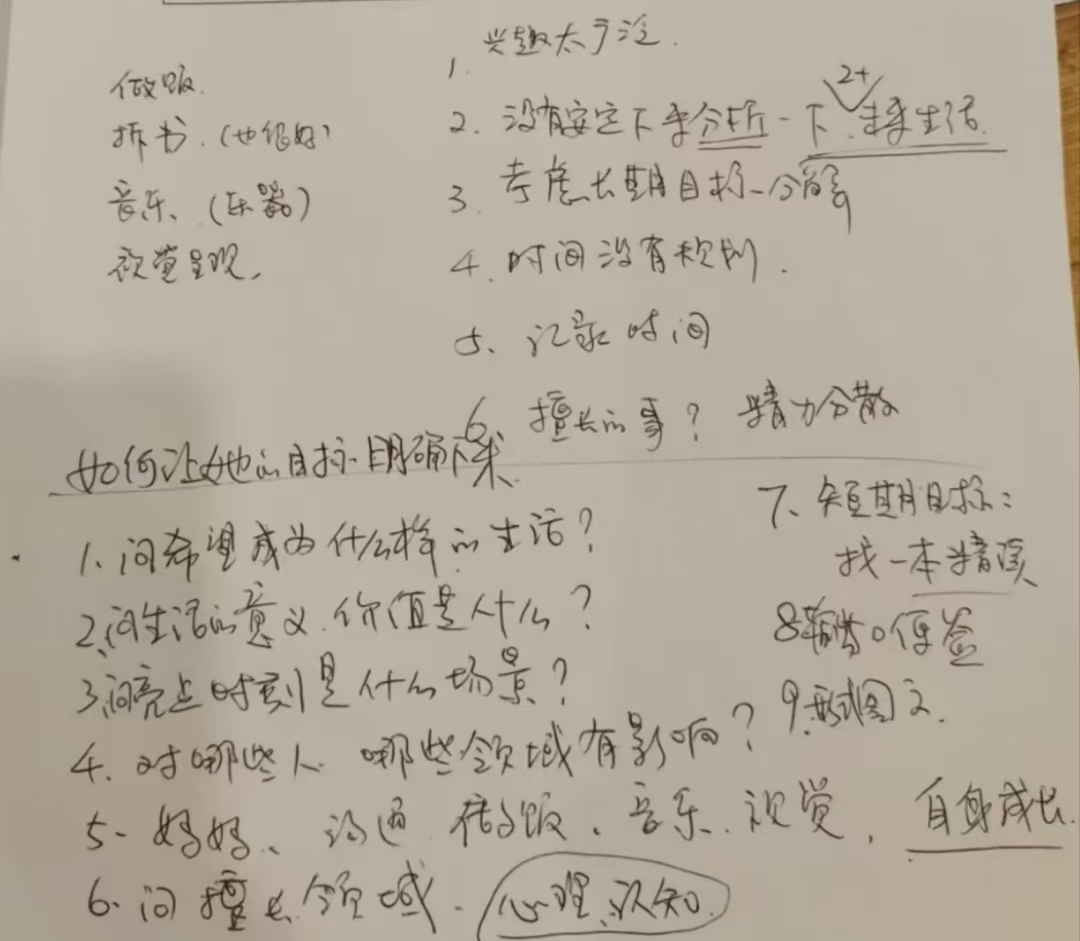 做饭.
拆书.(也很好)
音乐、(乐器)
视觉呈现.
1. 兴趣太广泛.
2. 没有安定下来分析一下.享受生活.
2+
3. 考虑长期目标-分解
4. 时间没有规划.
5、记录时间
6 擅长的事? 精力分散
如何让她的目标明确下来
1、问希望成为什么样的生活?
2、问生活的意义.价值是什么?
3、问亮点时刻是什么场景?
4. 对哪些人 哪些领域有影响?
5- 妈妈、沟通 做饭、音乐、视觉, 自身成长.
6. 问擅长领域. 心理、认知.
7、短期目标:
找一本精读
8 便签
9.形式图文.